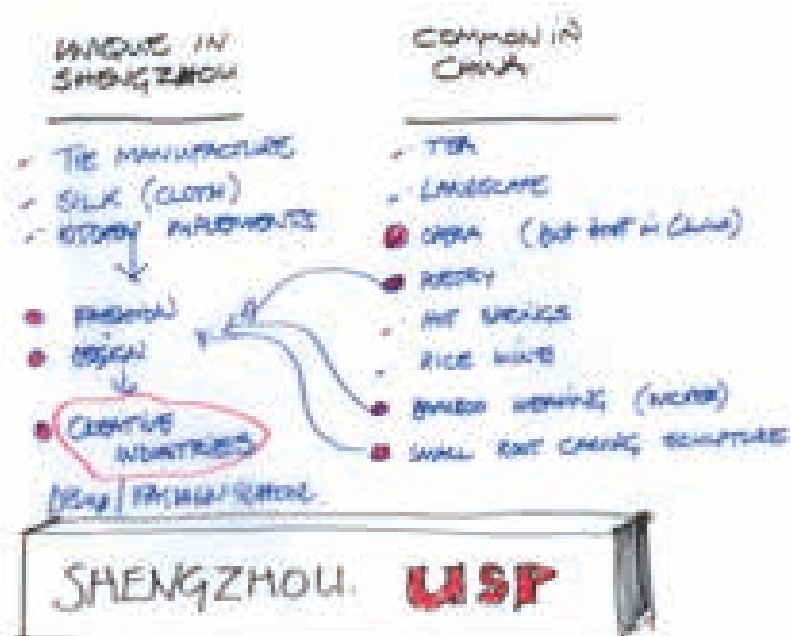 UNIQUE IN
SHENGZHOU
- TIE MANUFACTURE
- SILK (CLOTH)
- IMPLEMENTS
FASHION
DESIGN
CREATIVE
INDUSTRIES
/ FASHION SCHOOL
COMMON IN
CHINA
- TEA
- LANDSCAPE
OPERA (BUT BEST in CHINA)
POETRY
- HOT SPRINGS
- RICE WINE
BAMBOO WEAVING (WICKER)
SMALL ROOT CARING SCULPTURE
SHENGZHOU. USP